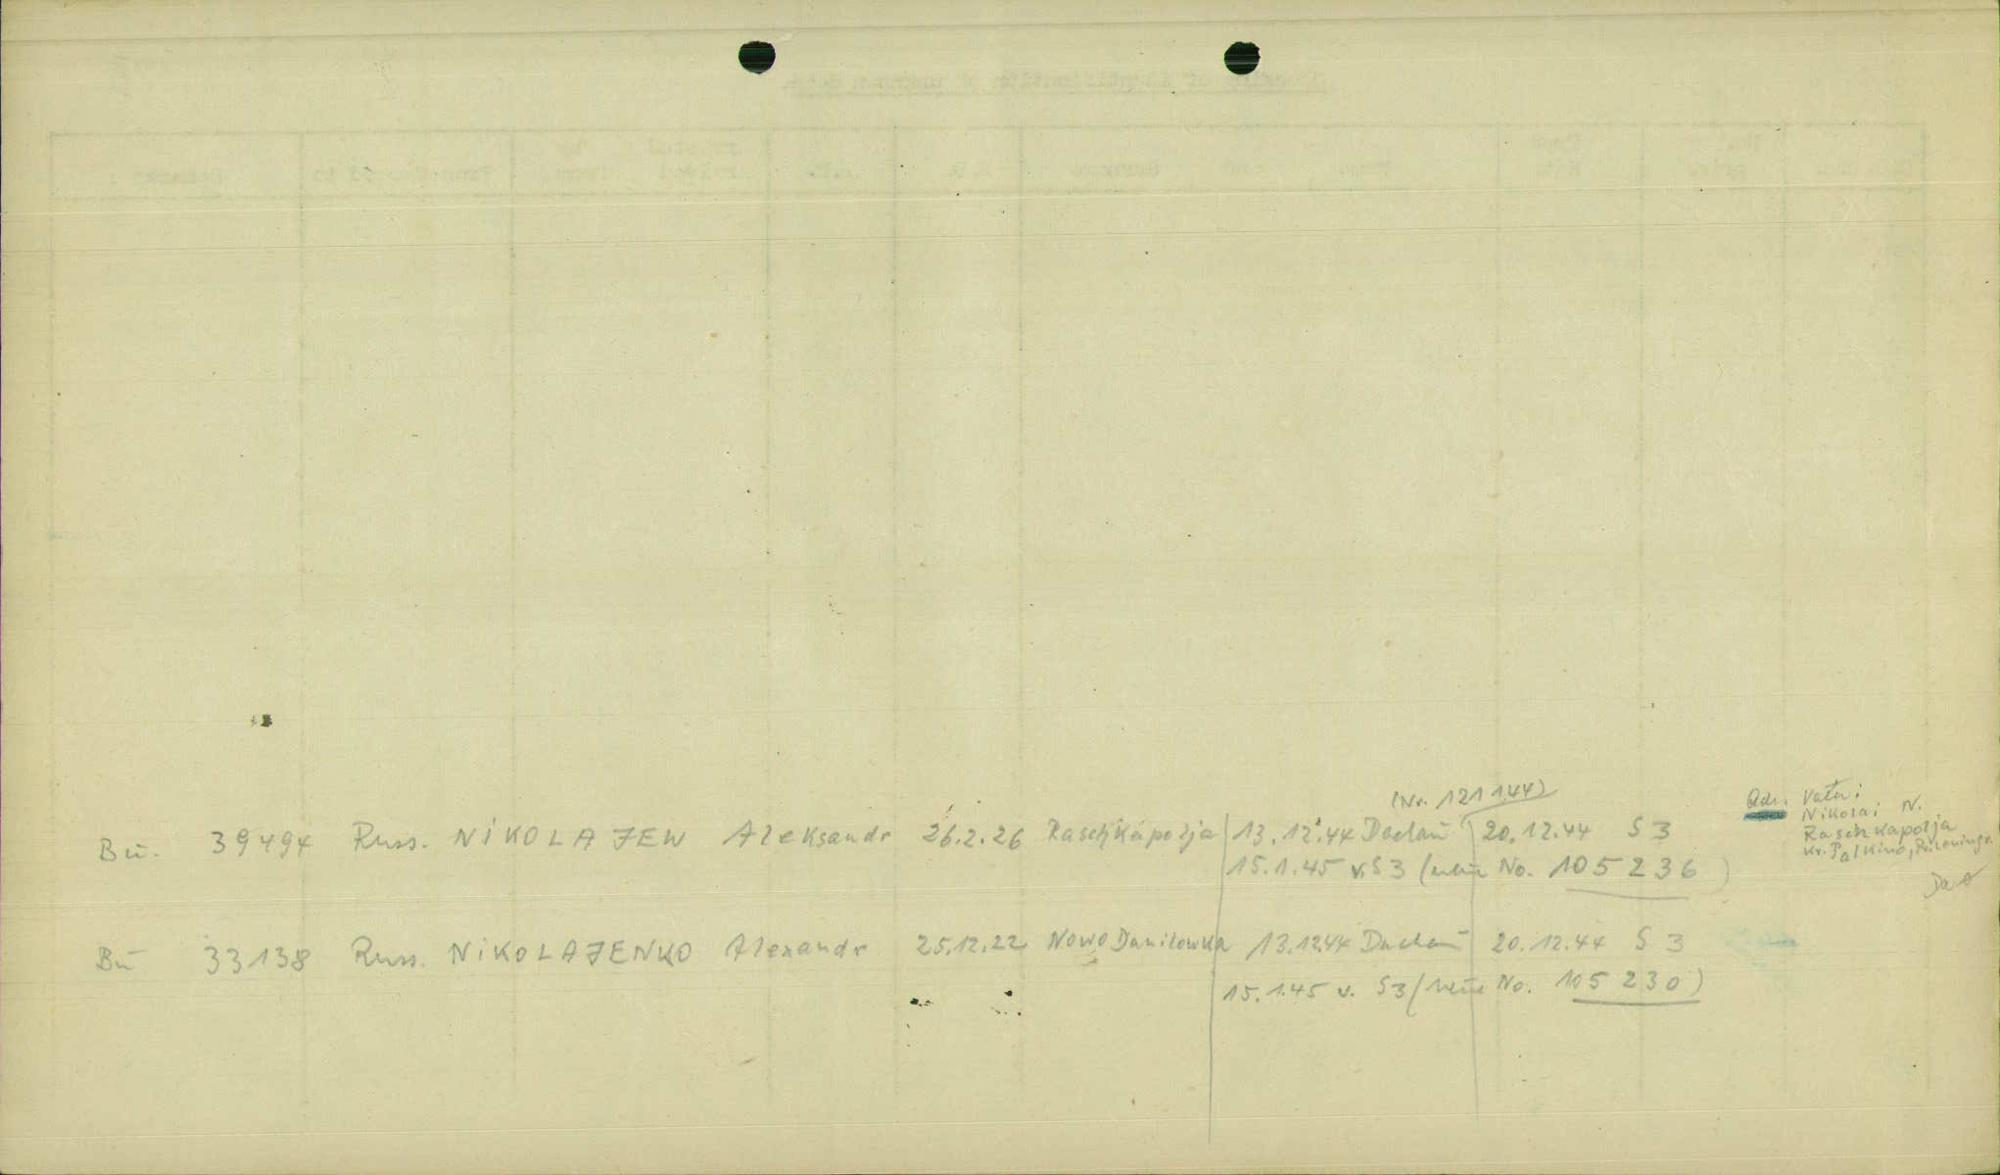 (Nr. 121 144)
Bu. 39494 Russ. NIKOLAJEW Aleksandr 26.2.26 Raschkapolja 13.12.44 Dachau 20.12.44 S3
15.1.45 v. S3 (neue No. 105 236)
Adr. Vater:
Nikolai N.
Raschkapolja
Kr. Palkino,
Bu 33138 Russ. NIKOLAJENKO Alexandr 25.12.22 Nowo Danilowka 13.12.44 Dachau 20.12.44 S3
15.1.45 v. S3 (neue No. 105 230)